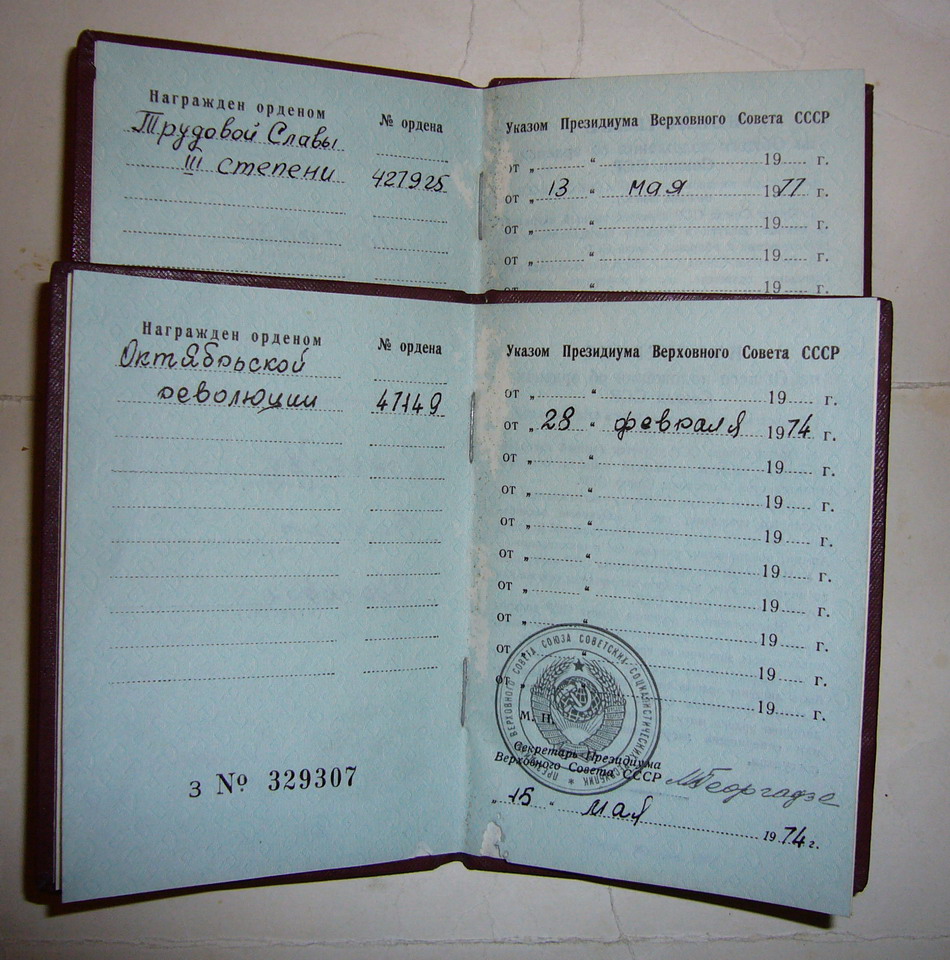 Награжден орденом
№ ордена
Трудовой Славы
III степени 427925
Указом Президиума Верховного Совета СССР
от „ “ 19 г.
от „ 13 “ мая 1977 г.
от „ “ 19 г.
от „ “ 19 г.
от „ “ 19 г.
Награжден орденом
№ ордена
Октябрьской
революции 47149
З № 329307
Указом Президиума Верховного Совета СССР
от „ “ 19 г.
от „ 28 “ февраля 1974 г.
от „ “ 19 г.
от „ “ 19 г.
от „ “ 19 г.
от „ “ 19 г.
от „ “ 19 г.
от „ “ 19 г.
от „ “ 19 г.
от „ “ 19 г.
ПРЕЗИДИУМ ВЕРХОВНОГО СОВЕТА СОЮЗА СОВЕТСКИХ СОЦИАЛИСТИЧЕСКИХ РЕСПУБЛИК
М. П.
Секретарь Президиума
Верховного Совета СССР
М Георгадзе
„ 15 “ мая 1974 г.